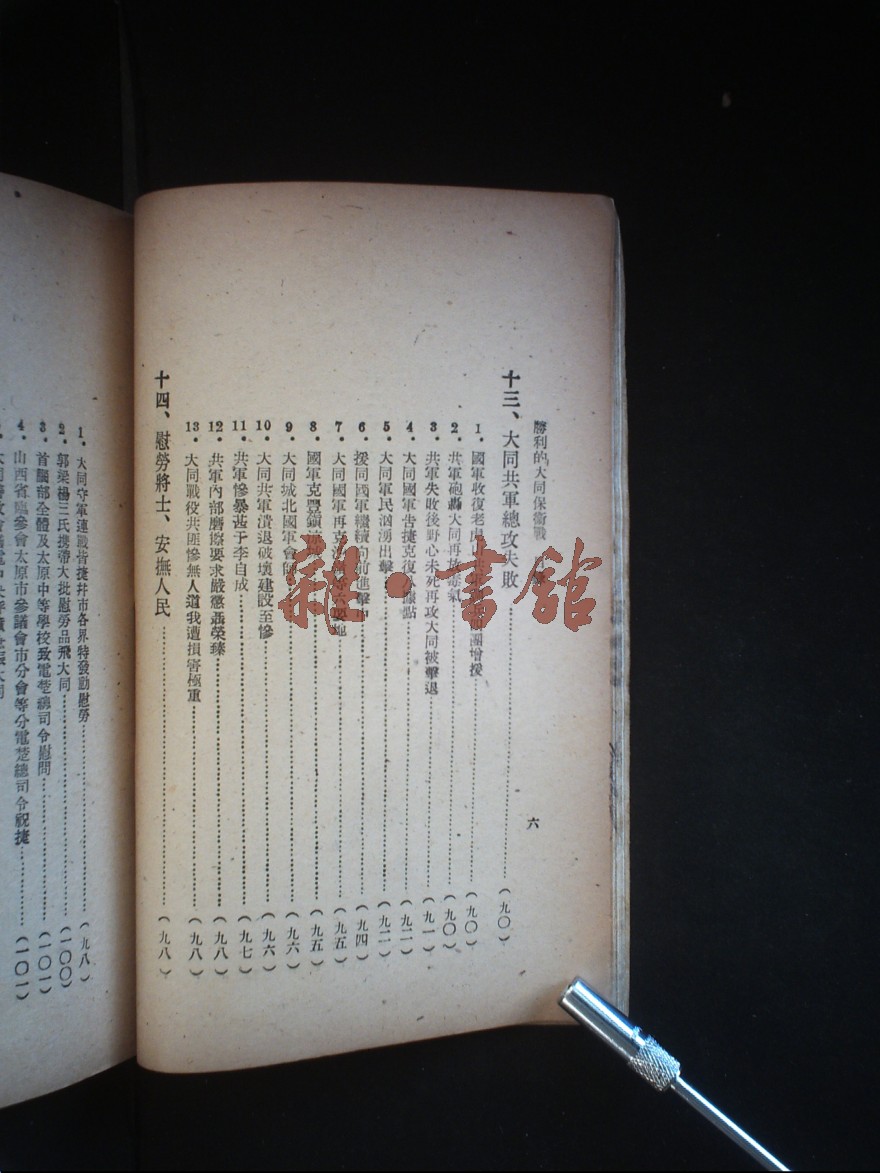 勝利的大同保衛戰 目錄
六
十三、大同共軍總攻失敗……（九〇）
1．國軍收復老虎山共北……團增援……（九〇）
2．共軍砲轟大同再放毒氣……（九〇）
3．共軍失敗後野心未死再攻大同被擊退……（九一）
4．大同國軍告捷克復八據點……（九二）
5．大同軍民洶湧出擊……（九二）
6．援同國軍繼續向前進擊中……（九四）
7．大同國軍再克……要地……（九五）
8．國軍克豐鎮涼城……（九五）
9．大同城北國軍會師……（九六）
10．大同共軍潰退破壞建設至慘……（九六）
11．共軍慘暴甚于李自成……（九七）
12．共軍內部磨擦要求嚴懲聶榮臻……（九八）
13．大同戰役共匪慘無人道我遭損害極重……（九八）
十四、慰勞將士、安撫人民……（九八）
1．大同守軍連戰皆捷幷市各界特發動慰勞……（九八）
2．郭梁楊三氏携帶大批慰勞品飛大同……（一〇〇）
3．首腦部全體及太原中等學校致電楚總司令慰問……（一〇一）
4．山西省臨參會太原市參議會市分會等分電楚總司令祝捷……（一〇一）
雜·書館